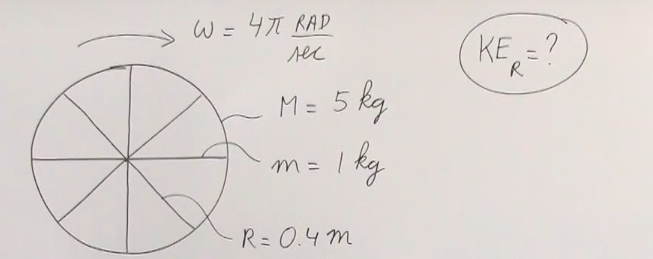 ω = 4π RAD/sec
KE_R = ?
M = 5 kg
m = 1 kg
R = 0.4 m